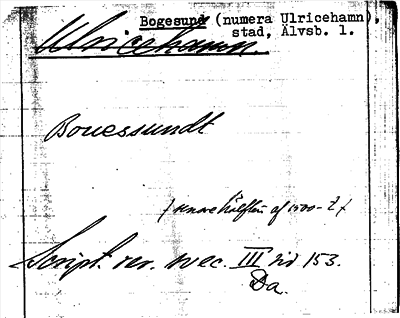 Bogesund (numera Ulricehamn),
stad, Älvsb. l.
Ulricehamn.
Bouessundt
( senare hälften af 1500-t. )
Script. rer. svec. III sid 153.
Da.